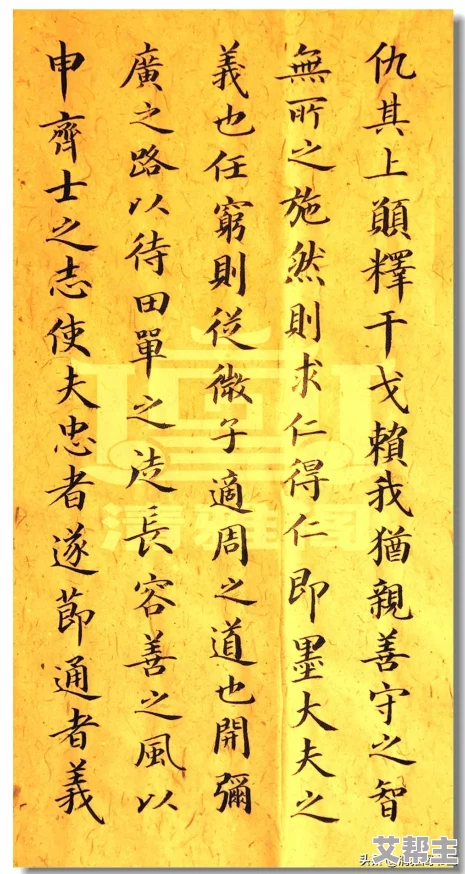 仇其上願釋干戈賴我猶親善守之智
無所之施然則求仁得仁即墨大夫之
義也任窮則從微子適周之道也開彌
廣之路以待田單之徒長容善之風以
申齊士之志使夫忠者遂節通者義
清雅阁
艾帮主